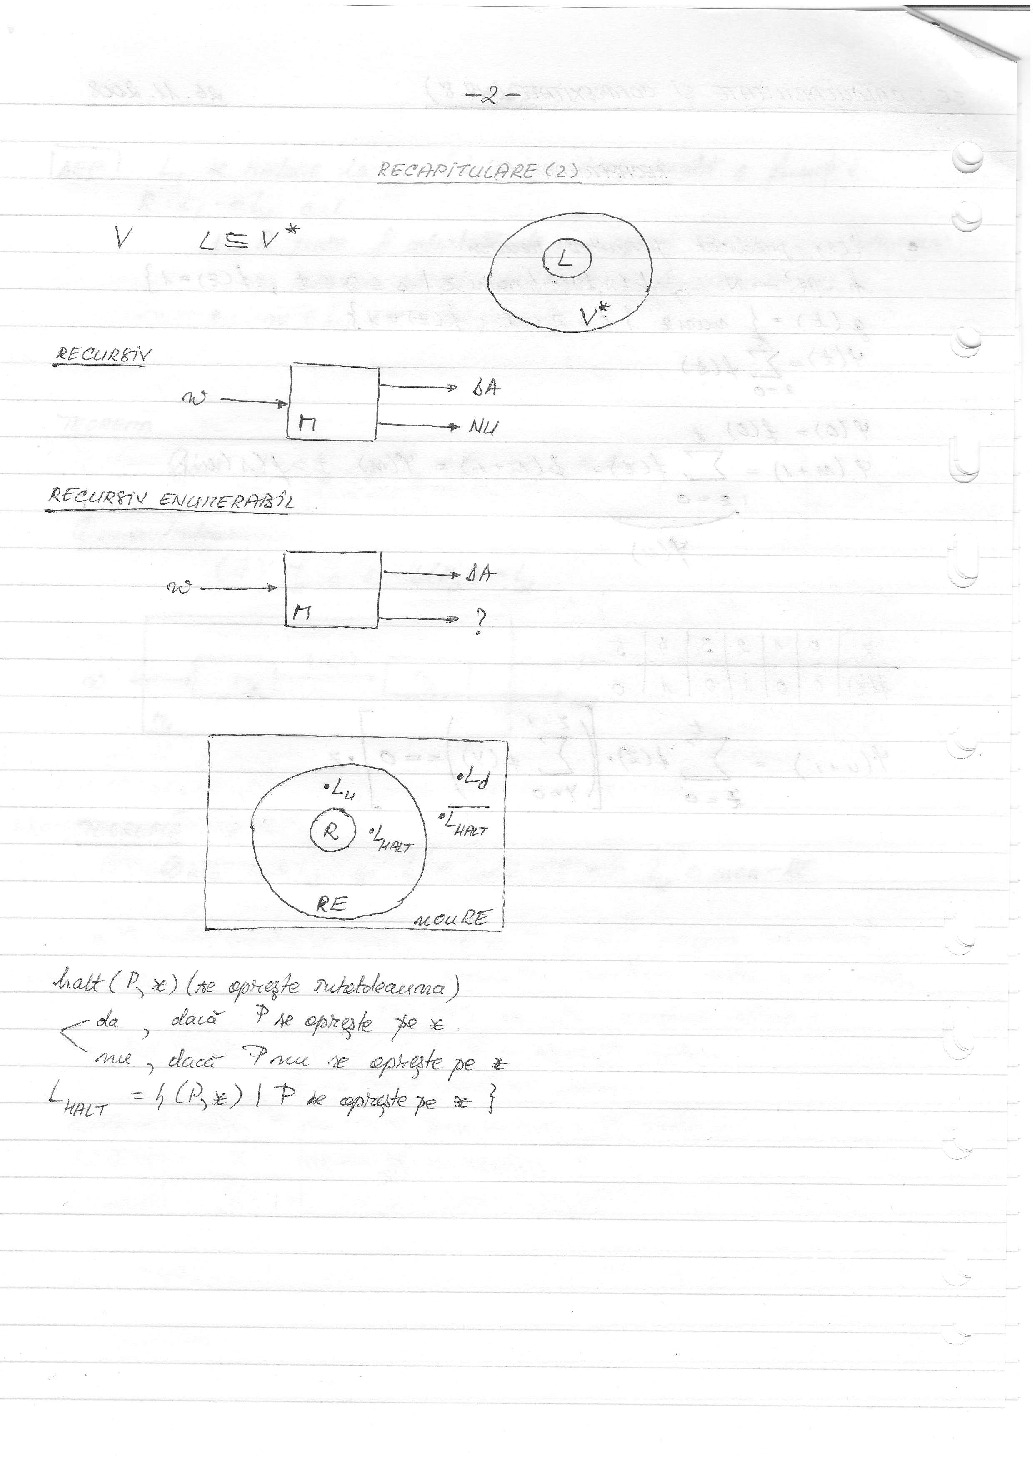 -2-
RECAPITULARE (2)
V L ⊆ V*
L
V*
RECURSIV
w M DA
NU
RECURSIV ENUMERABIL
w M DA
?
.Lu .Ld
R .L_HALT .L_HALT
RE nonRE
halt (P, x) (se oprește întotdeauna)
da, dacă P se oprește pe x
nu, dacă P nu se oprește pe x
L_HALT = { (P, x) | P se oprește pe x }